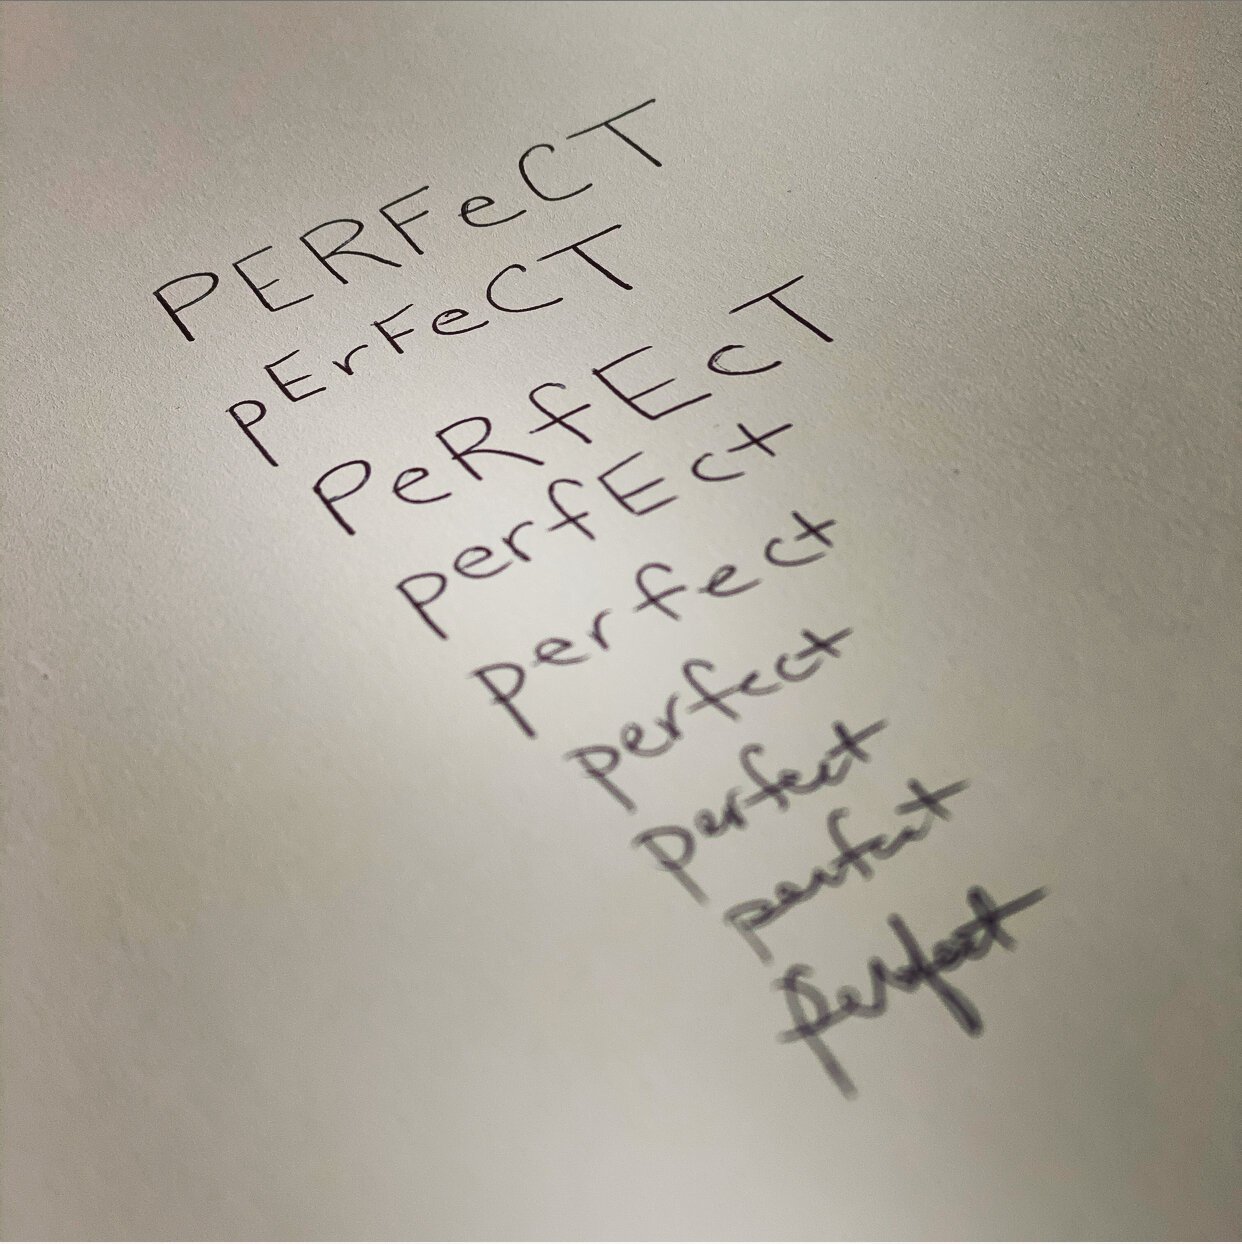 PERFeCT
pErFeCT
PeRfEcT
perfEct
perfect
perfect
perfect
perfect
perfect